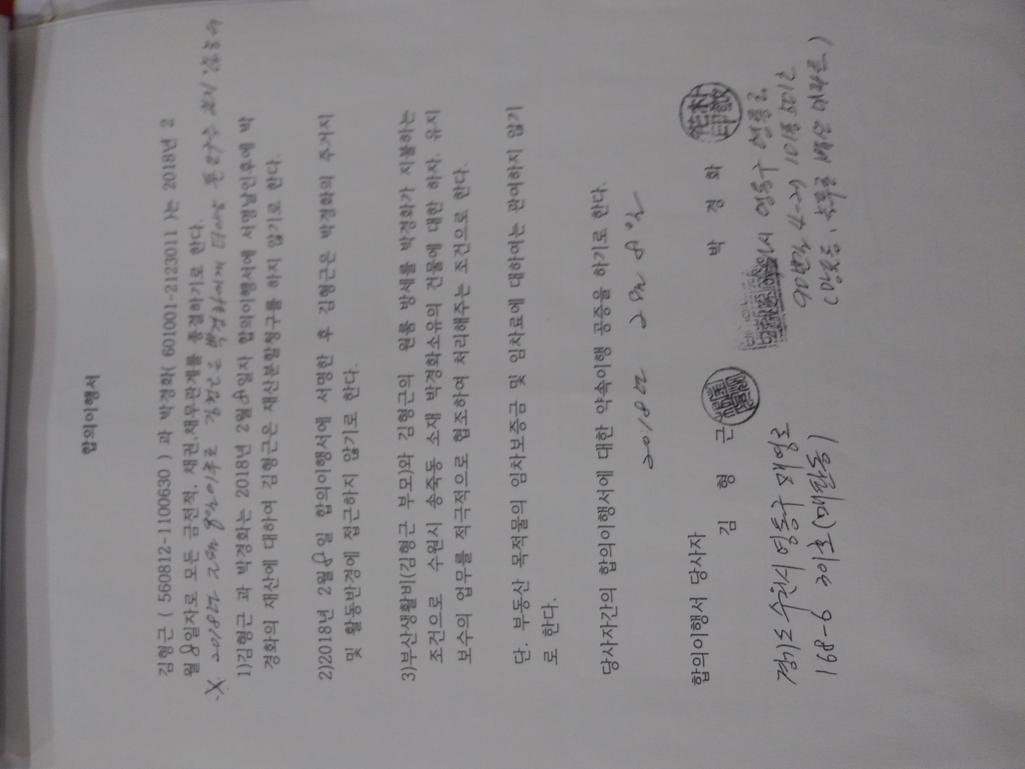 합의이행서
김형근 ( 560812-1100630 ) 과 박경화( 601001-2123011 )는 2018년 2
월 8일자로 모든 금전적, 채권,채무관계를 종결하기로 한다.
※ 2018년 2월 8일이후로 김형근은 박경화에게
1)김형근 과 박경화는 2018년 2월 8일자 합의이행서에 서명날인후에 박
경화의 재산에 대하여 김형근은 재산분할청구를 하지 않기로 한다.
2)2018년 2월 8일 합의이행서에 서명한 후 김형근은 박경화의 주거지
및 활동반경에 접근하지 않기로 한다.
3)부산생활비(김형근 부모)와 김형근의 원룸 방세를 박경화가 지불하는
조건으로 수원시 송죽동 소재 박경화소유의 건물에 대한 하자, 유지
보수의 업무를 적극적으로 협조하여 처리해주는 조건으로 한다.
단. 부동산 목적물의 임차보증금 및 임차료에 대하여는 관여하지 않기
로 한다.
당사자간의 합의이행서에 대한 약속이행 공증을 하기로 한다.
2018년 2월 8일
합의이행서 당사자
김 형 근
박 경 화
경기도 수원시 영통구 매영로
168-6 301호 (매탄동)
영통구